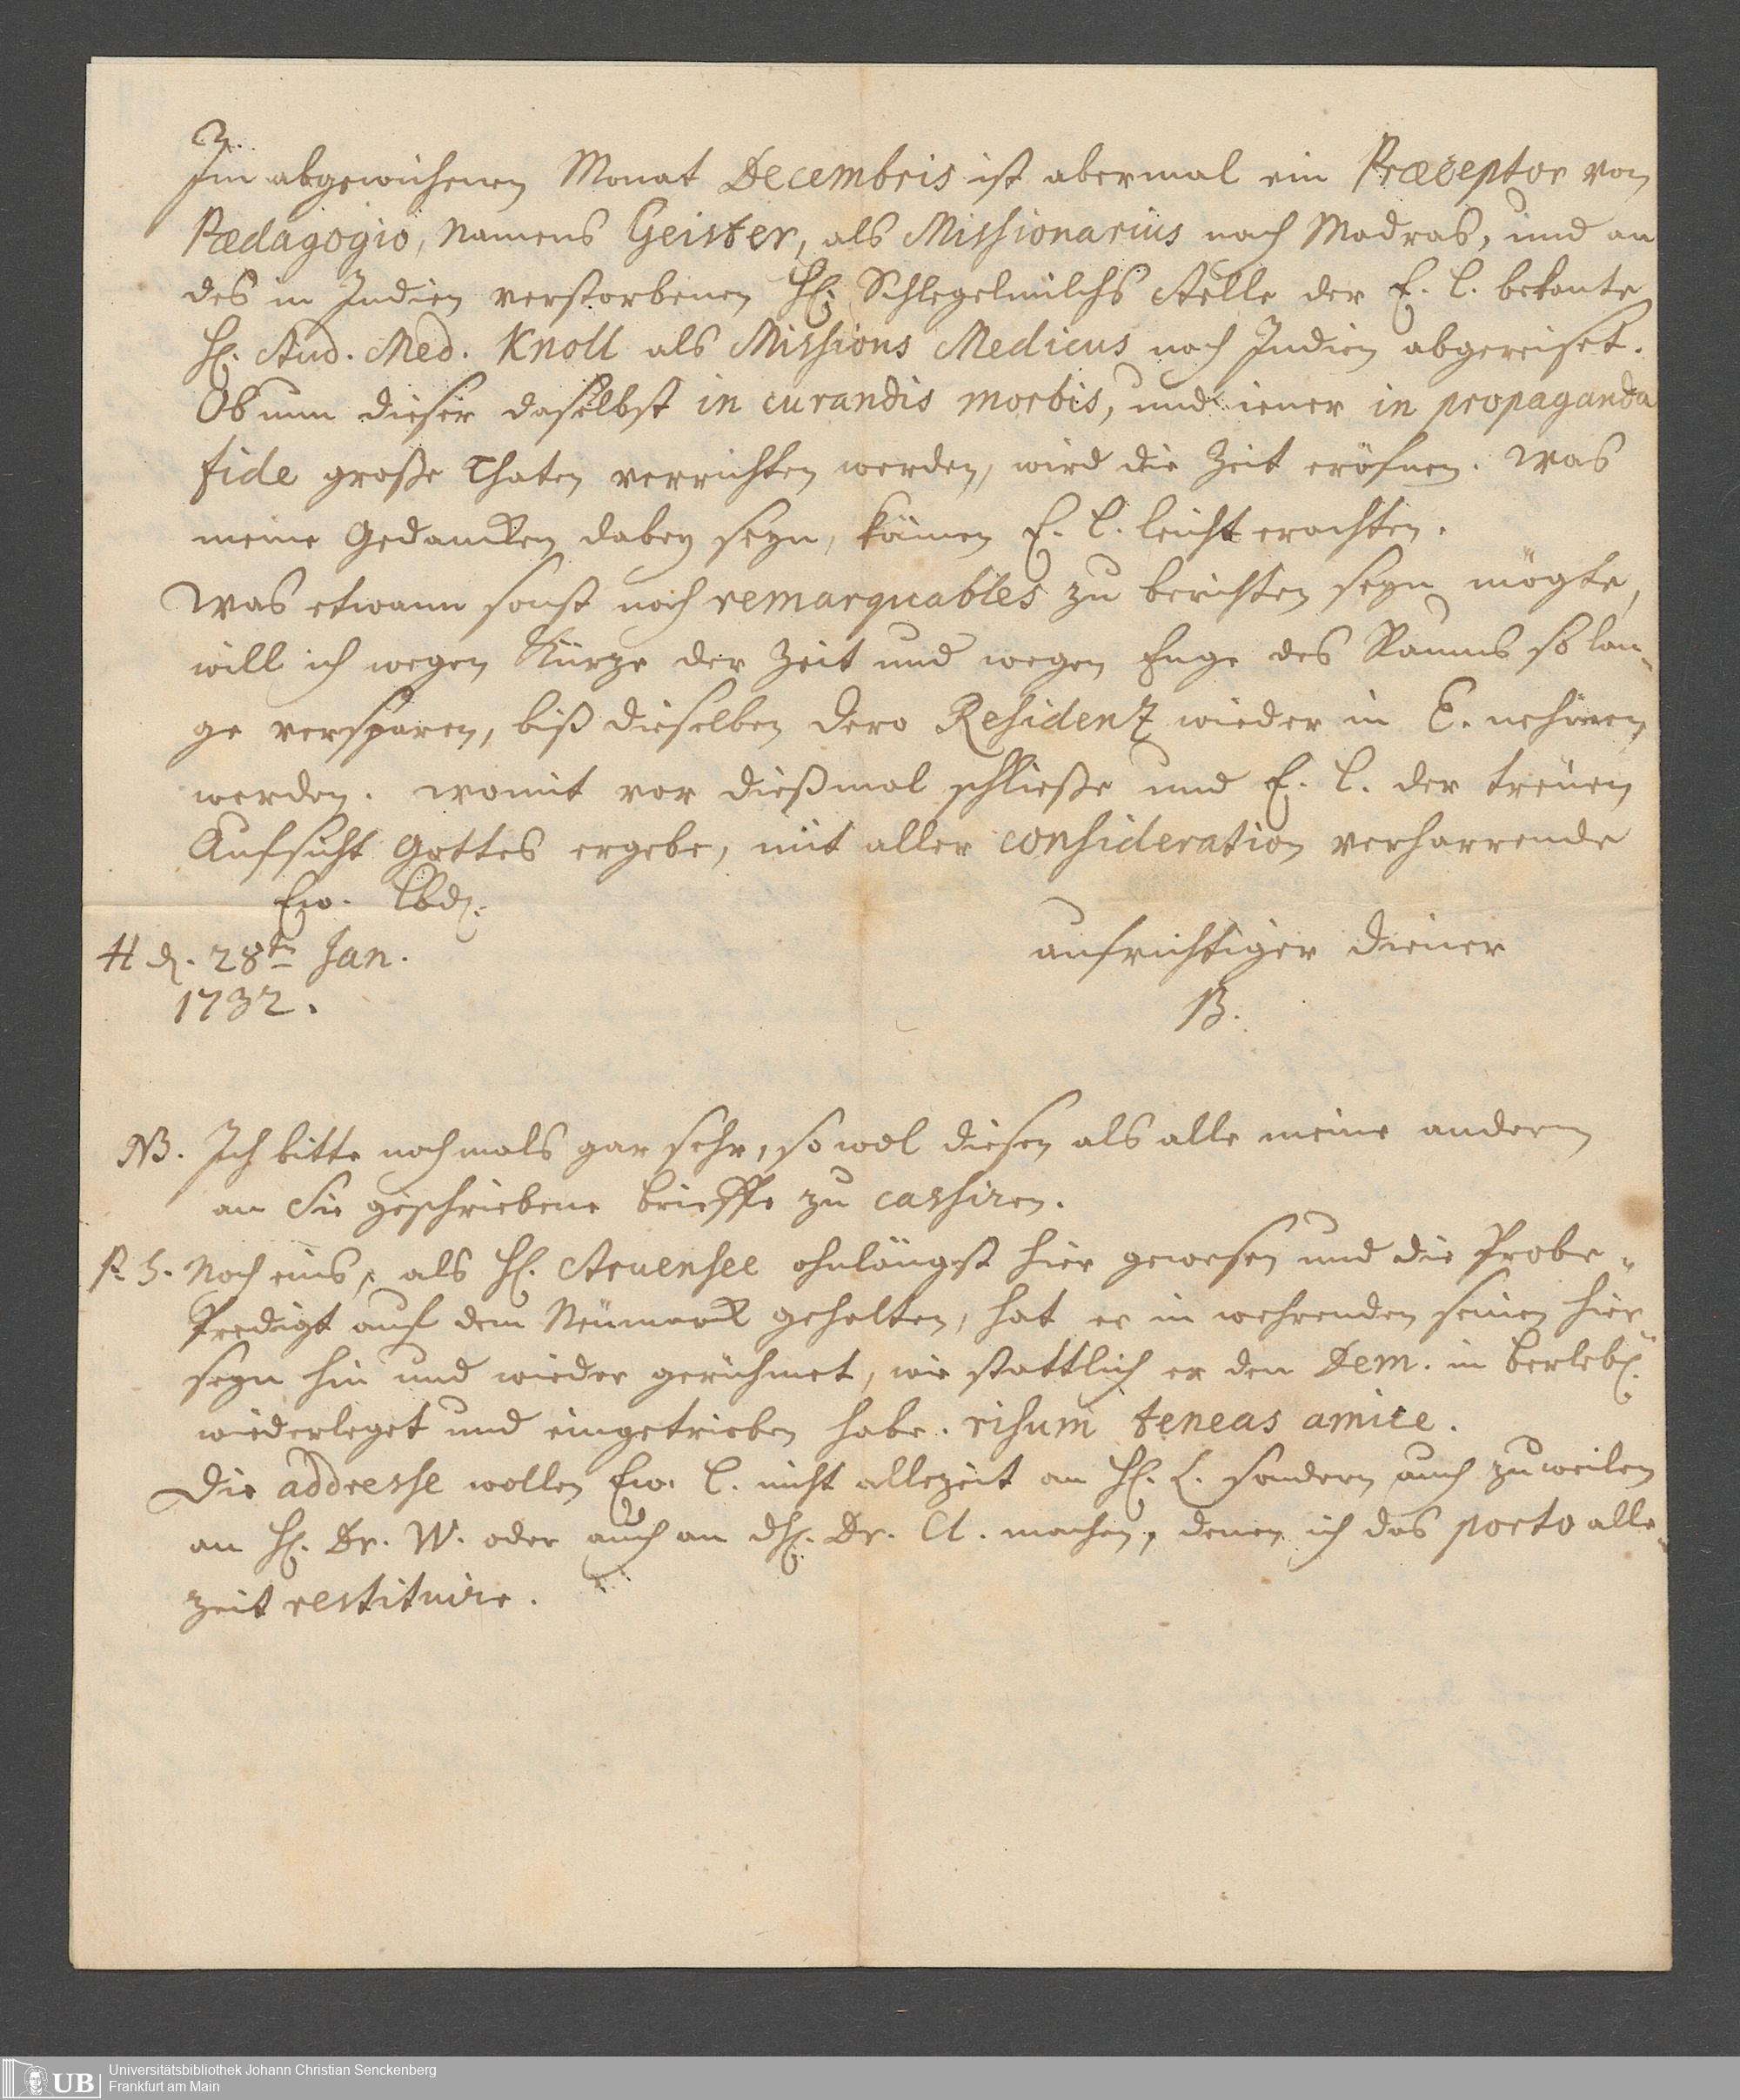 Im abgewichenen Monat Decembris ist abermal ein Præceptor von
Pædagogio, Namens Geister, als Missionarius nach Madras, und an
des in Indien verstorbenen H. Schlegelmilchs Stelle der E. L. bekante
H. Stud. Med. Knoll als Missions Medicus nach Indien abgereiset.
Ob nun dieser daselbst in curandis morbis, und iener in propaganda
fide große Thaten verrichten werden, wird die Zeit eröfnen. Was
meine Gedancken dabey seyn, könen E. L. leicht erachten.
Was etwann sonst noch remarquables zu berichten seyn mögte,
will ich wegen Kürze der Zeit und wegen Enge des Raums so lan-
ge versparen, biß dieselben dero Residenz wieder in E. nehmen
werden. Womit vor dießmal schließe und E. L. der treuen
Aufsicht Gottes ergebe, mit aller consideration verharrende
Ew. Lbd.
H d. 28ten Jan.
aufrichtiger Diener
1732.
B.
NB. Ich bitte nochmals gar sehr, so wol diesen als alle meine andern
an Sie geschriebene Brieffe zu cassiren.
P. S. Noch eins, als H. Struensee ohnlängst hier gewesen und die Probe-
Predigt auf dem Neumarck gehalten, hat er in wehrenden seinen hier
seyn hin und wieder gerühmet, wie stattlich er den Dem. in Berleb.
wiederleget und eingetrieben habe. risum teneas amice.
Die addresse wollen Ew. L. nicht allezeit an H. L. sondern auch zuweilen
an H. Dr. W. oder auch an H. Dr. A. machen, denen ich das porto alle-
zeit restituire.
UB Universitätsbibliothek Johann Christian Senckenberg
Frankfurt am Main